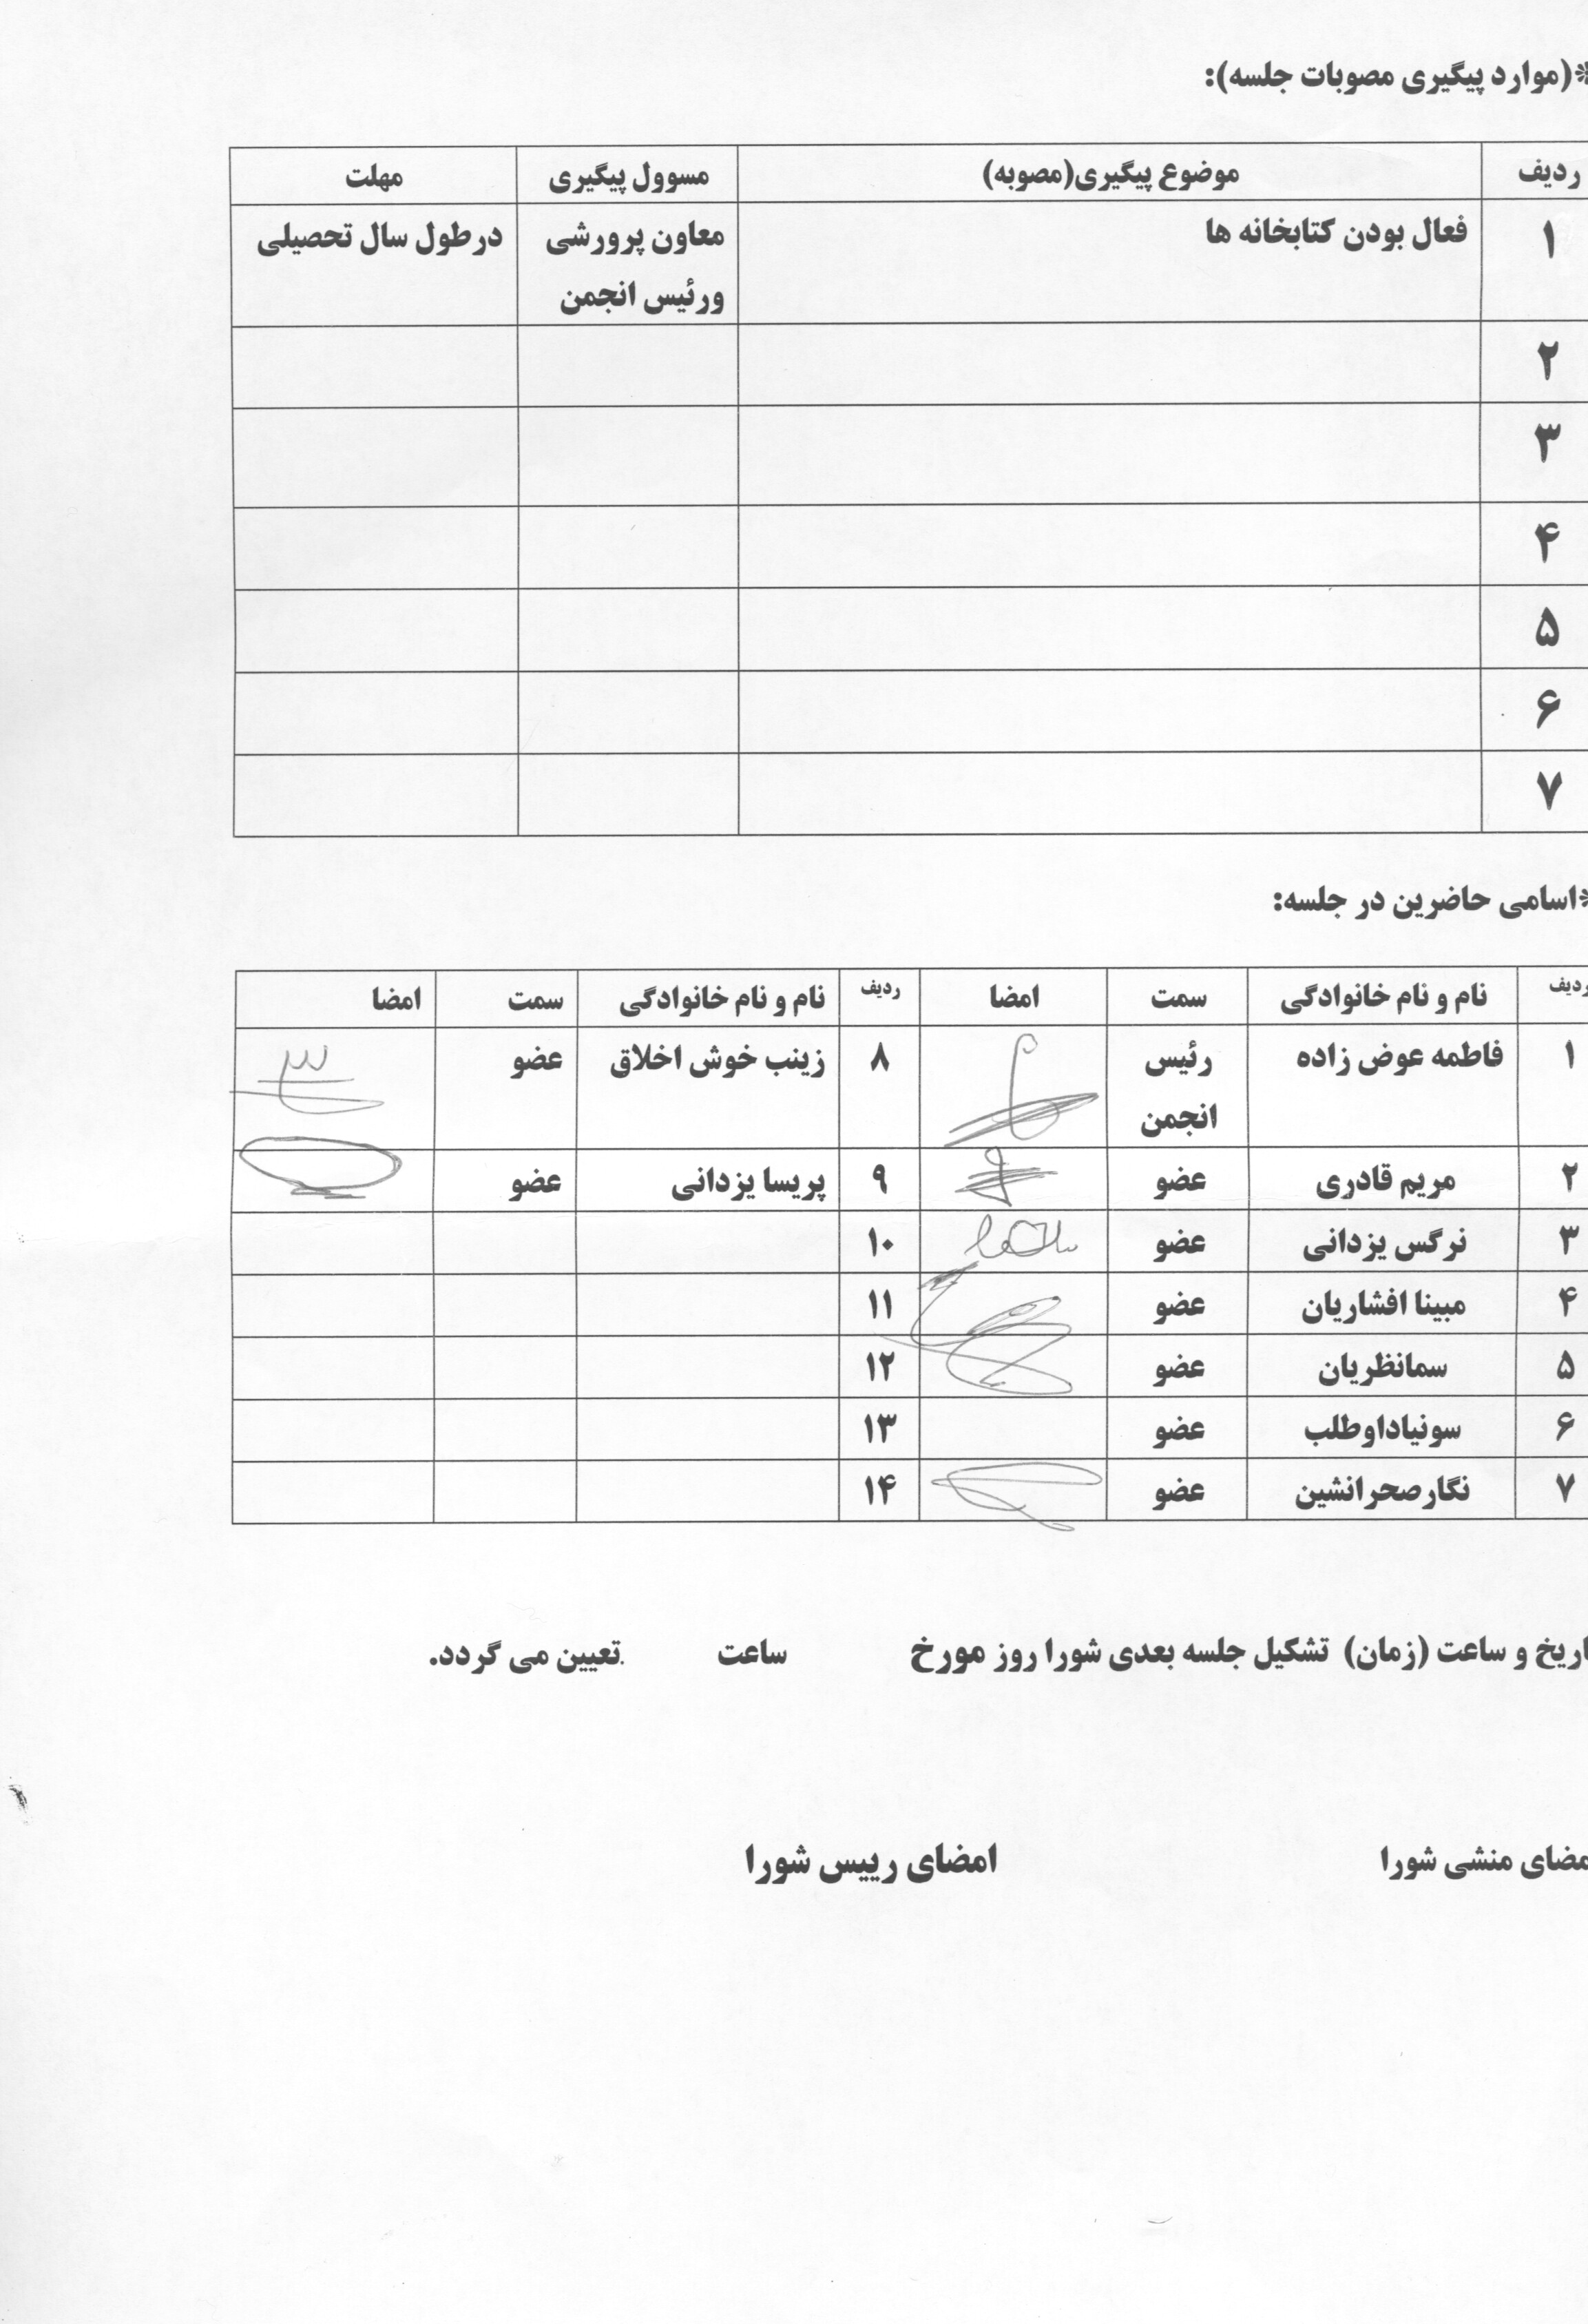 *(موارد پیگیری مصوبات جلسه):
ردیف موضوع پیگیری(مصوبه) مسوول پیگیری مهلت
۱ فعال بودن کتابخانه ها معاون پرورشی درطول سال تحصیلی
ورئیس انجمن
۲
۳
۴
۵
۶
۷
*اسامی حاضرین در جلسه:
ردیف نام و نام خانوادگی سمت امضا ردیف نام و نام خانوادگی سمت امضا
۱ فاطمه عوض زاده رئیس ۸ زینب خوش اخلاق عضو
انجمن
۲ مریم قادری عضو ۹ پریسا یزدانی عضو
۳ نرگس یزدانی عضو ۱۰
۴ مبینا افشاریان عضو ۱۱
۵ سمانظریان عضو ۱۲
۶ سونیاداوطلب عضو ۱۳
۷ نگارصحرانشین عضو ۱۴
اریخ و ساعت (زمان) تشکیل جلسه بعدی شورا روز مورخ ساعت تعیین می گردد.
مضای منشی شورا امضای رییس شورا